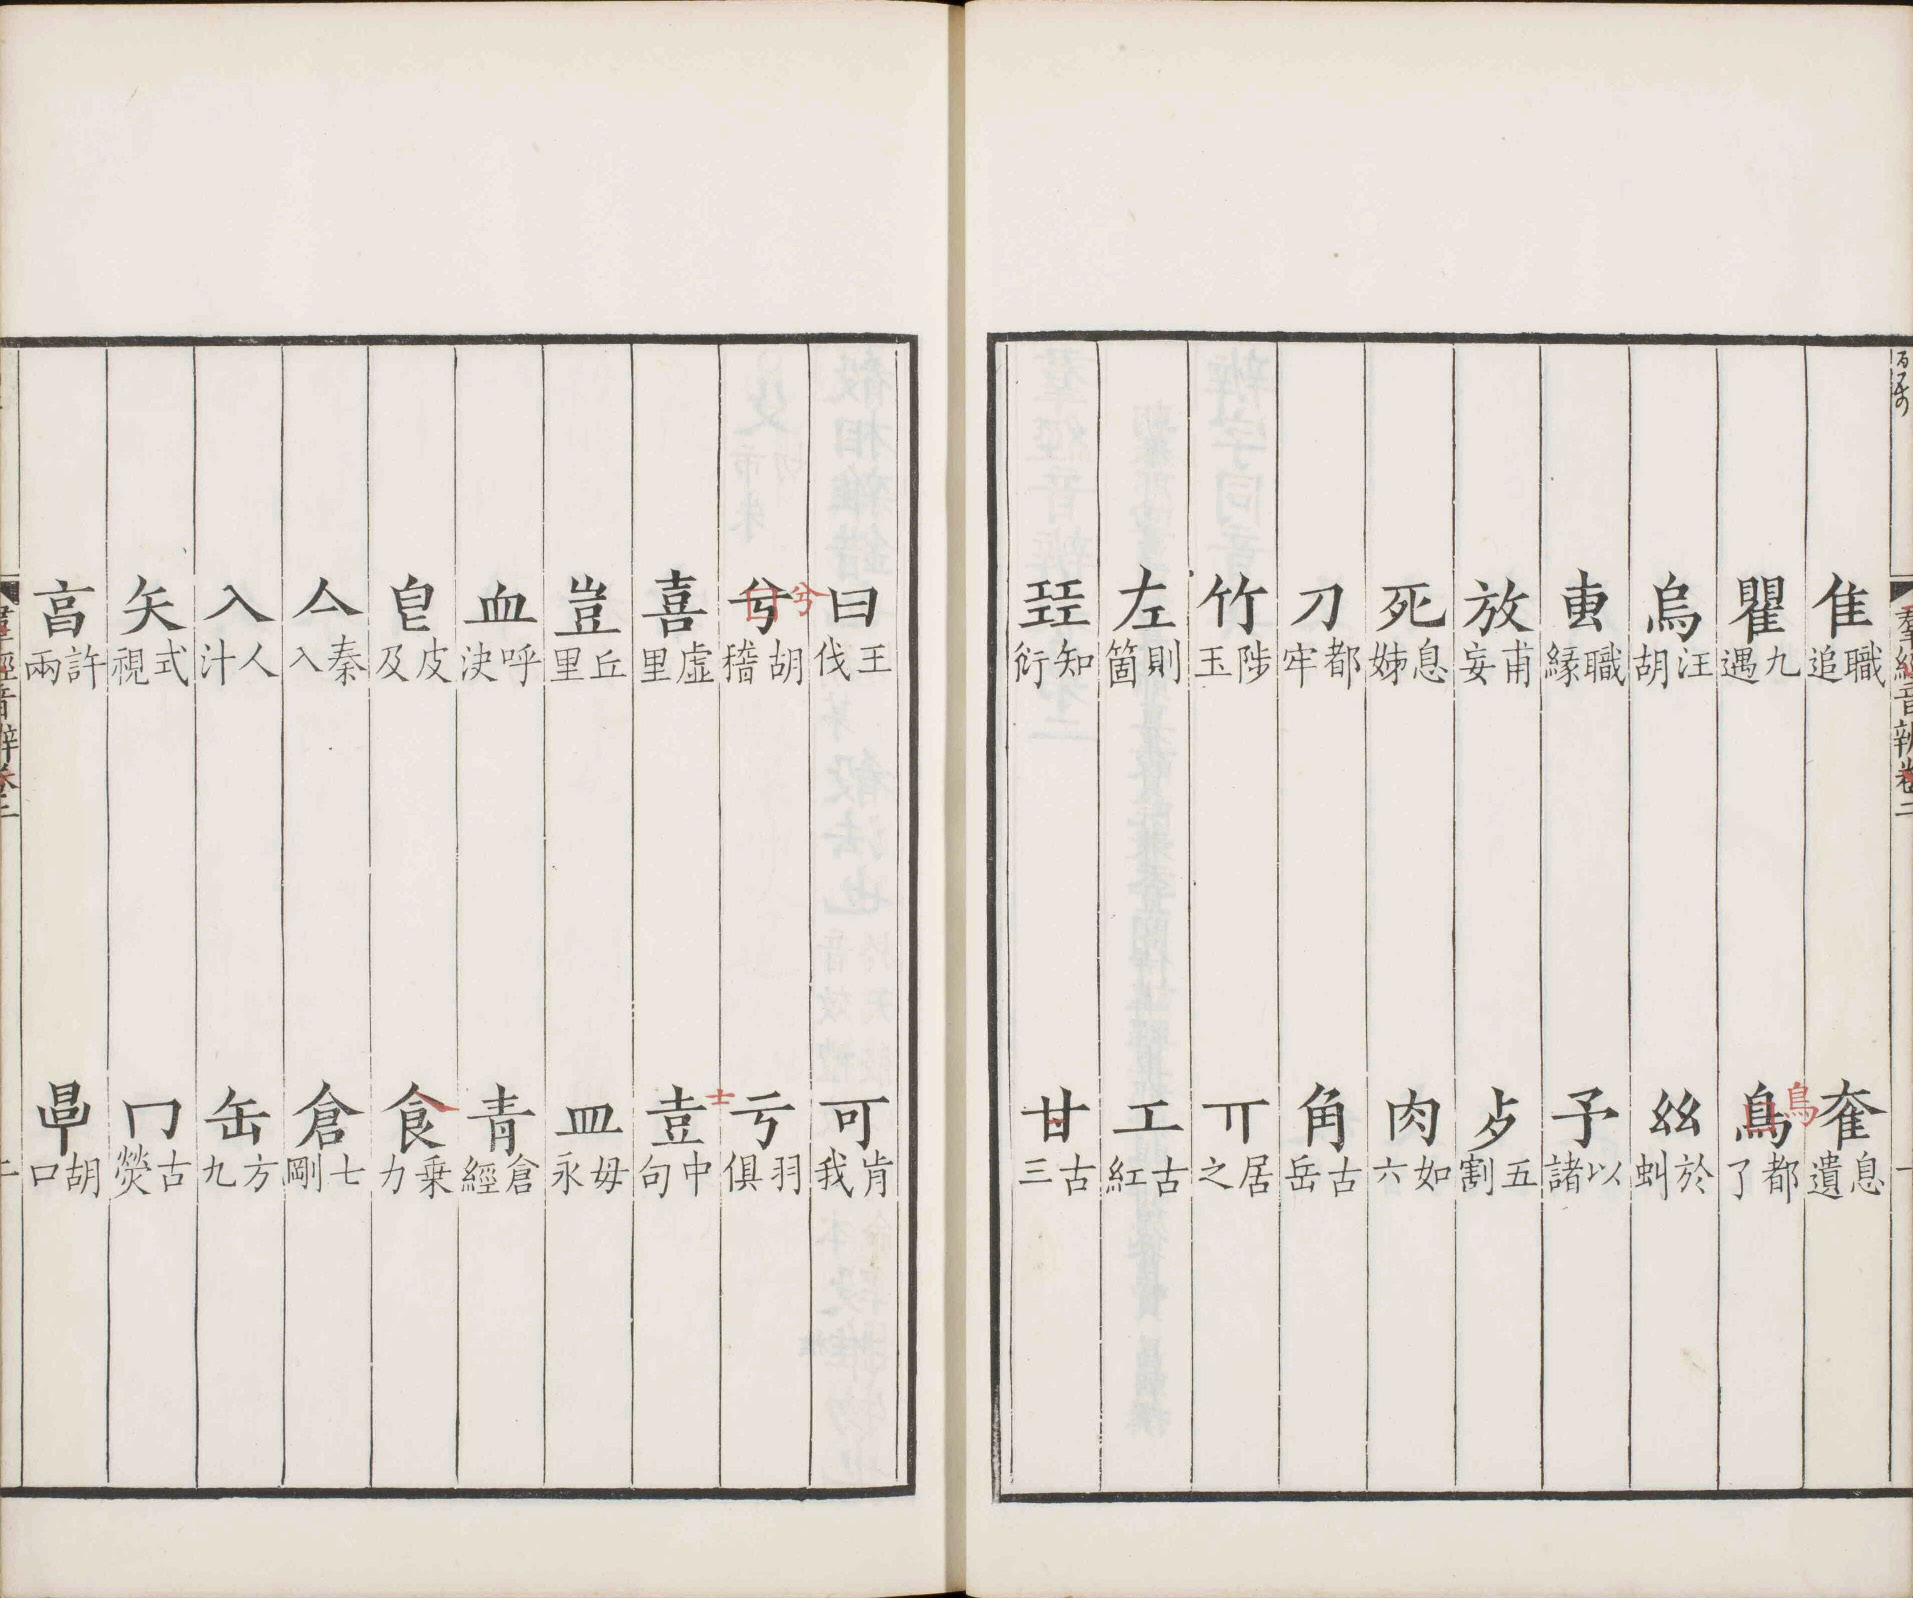 隹職追 奞息遺
瞿九遇 鳥都了 鳥
烏汪胡 𢆶於虯
叀職緣 予以諸
放甫妄 歺五割
死息姊 肉如六
刀都牢 角古岳
竹陟玉 丌居之
左則箇 工古紅
㠭知衍 甘古三
羣經音辨卷二 一
曰王伐 可肯我
兮胡稽 兮 亏羽俱
喜虛里 壴中句 士
豈丘里 皿毋永
血呼決 青倉經
皀皮及 食乗力
亼秦入 倉七剛
入人汁 缶方九
矢式視 冂古熒
亯許兩 𣆪胡口
羣經音辨卷二 二